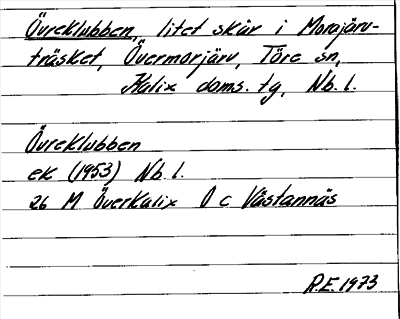 Övreklubben, litet skär i Morajärv-
träsket, Övermorjärv, Töre sn,
Kalix doms. tg, Nb. l.
Övreklubben
ek (1953) Nb. l.
26 M Överkalix O c Västannäs
R.E. 1973